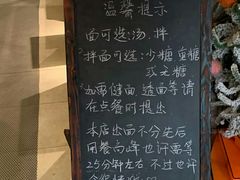 温馨提示
面可选:汤、拌
拌面可选:少糖 重糖
或无糖
加需硬面、透面等请
在点餐时提出
本店出面不分先后
用餐高峰也许需等
25分钟左右 不过也许